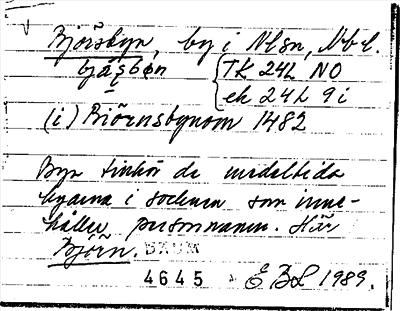 Björsbyn, by i Nlsn, Nbl.
bjäsbön
TK 24L NO
ek 24L 9i
(i) Biörnsbynom 1482
Byn tillhör de medeltida
byarna i socknen som inne-
håller personnamn. Här
Björn. DAUM
4645 EBL 1989.